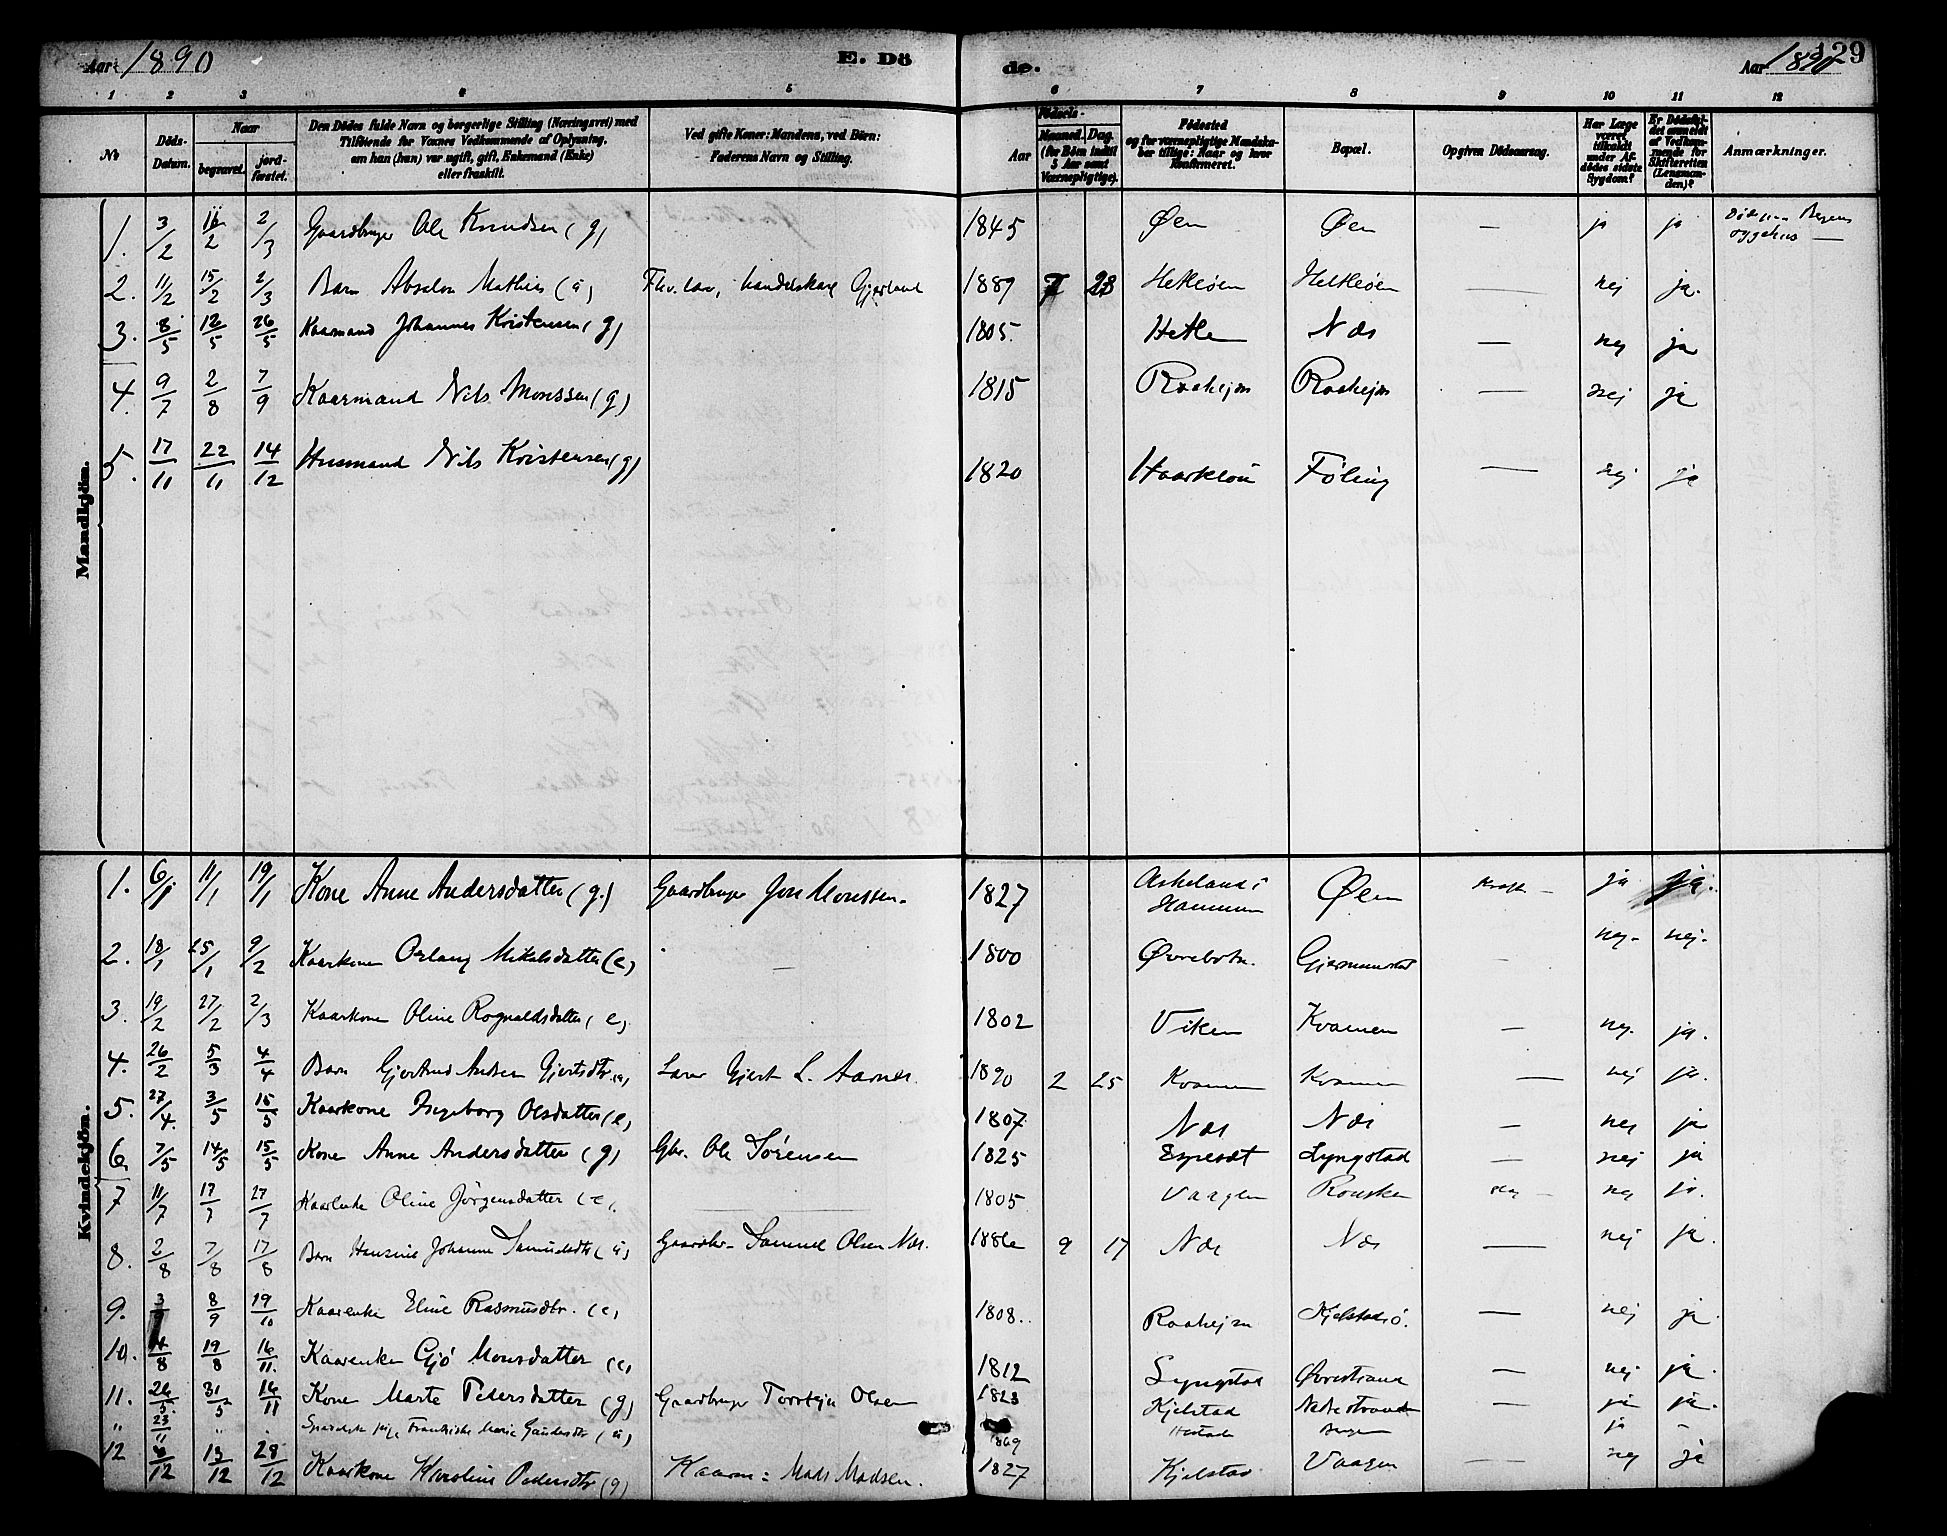 Aar 1890 E. Dö de. Aar 1890 129
1 2 3 4 5 6 7 8 9 10 11 12
No Döds-Datum. Naar begravet. jord-fæstet. Den Dödes fulde Navn og borgerlige Stilling (Næringsvei) med Tilföiende for Voxnes Vedkommende af Oplysning, om han (hun) var ugift, gift, Enkemand (Enke) eller fraskilt. Ved gifte Koner: Mandens, ved Börn: Faderens Navn og Stilling. Födsels- Aar Maaned. Dag. (for Börn indtil 5 Aar samt Værnepligtige). Födested og for værnepligtige Mandskaber tillige: Naar og hvor Konfirmeret. Bopæl. Opgiven Dödsaarsag. Har Læge været tilkaldt under Afdödes sidste Sygdom? Er Dödsfaldet anmeldt af Vedkommende for Skifteretten (Lensmanden)? Anmærkninger.
Mandkjön.
1. 3/2 16/2 2/3 Gaardbruger Ole Knudsen (g) 1845 Øen Øen — ja ja Død paa Bergens sygehus —
2. 11/2 15/2 2/3 Barn Absalon Mathias (u) Fhv. handelskarl Gjerland 1889 7 28 Hetleöen Hetleöen — nej ja.
3. 8/5 12/5 26/5 Kaarmand Johannes Kristensen (g) 1805. Hetle Næs — nej ja
4. 9/7 2/8 7/9 Kaarmand Nils Monssen (g) 1815 Raahejm Raahejm — nej ja
5. 17/11 22/11 14/12 Husmand Nils Kristensen (g) 1820 Haarkloü Föling — nej ja
Kvindekjön.
1. 6/1 11/1 19/1 Kone Anne Andersdatter (g.) Gaardbruger Jon Monssen. 1827 Askeland i Hammer Øen Kræft — ja ja.
2. 18/1 25/1 9/2 Kaarkone Mikalsdatter (e) — 1800 Øvrebotn. Gjermundstad — nej. nej.
3. 19/2 27/2 2/3 Kaarkone Oline Rognaldsdatter (e) 1802 Viken Kvamen — nej. ja.
4. 26/2 5/3 4/4 Barn Gjertrud Gjertsdtr (u) Lærer Gjert L. Aarnes. 1890 2 25 Kvamen Kvamen — nej ja.
5. 27/4. 3/5 15/5 Kaarkone Ingeborg Olsdatter (e) 1807. Næs Næs — nej ja
6. 7/5 14/5 15/5 Kone Anne Andersdatter (g) Gbr. Ole Sörensen 1825 Espesæt Lyngstad — nej ja
7 11/7 17/7 27/7 Kaarenke Oline Jörgensdatter (e). — 1805 Vaagen — nej ja.
8. 2/8 7/8 17/8 Barn Hansine Johanne Samuelsdtr (u) Gaardbr. Samuel Olsen Næs. 1886 9 17 Næs Næs — nej ja.
9. 3/9 8/9 19/10 Kaarenke Eline Rasmusdtr. (e) 1808. Raahejm Kjelstadsö. — nej ja.
10. 14/8 19/8 16/11. Kaarenke Gjö Monsdatter (e) 1812 Lyngstad Øvrestrand — nej ja.
11. 26/5. 31/5 16/11 Kone Marte Petersdatter (g) Gaardbruger Torstejn Olsen 1823 Kjelstad Nedrestrand — ja ja.
" 23/11 " . pige Marie (u) 1869 Hestad Bergen ja —
12 6/12 13/12 28/12 Kaarkone Karoline Pedersdtr (g) Kaarm: Mads Madsen. 1827 Kjelstad Vaagen — nej ja